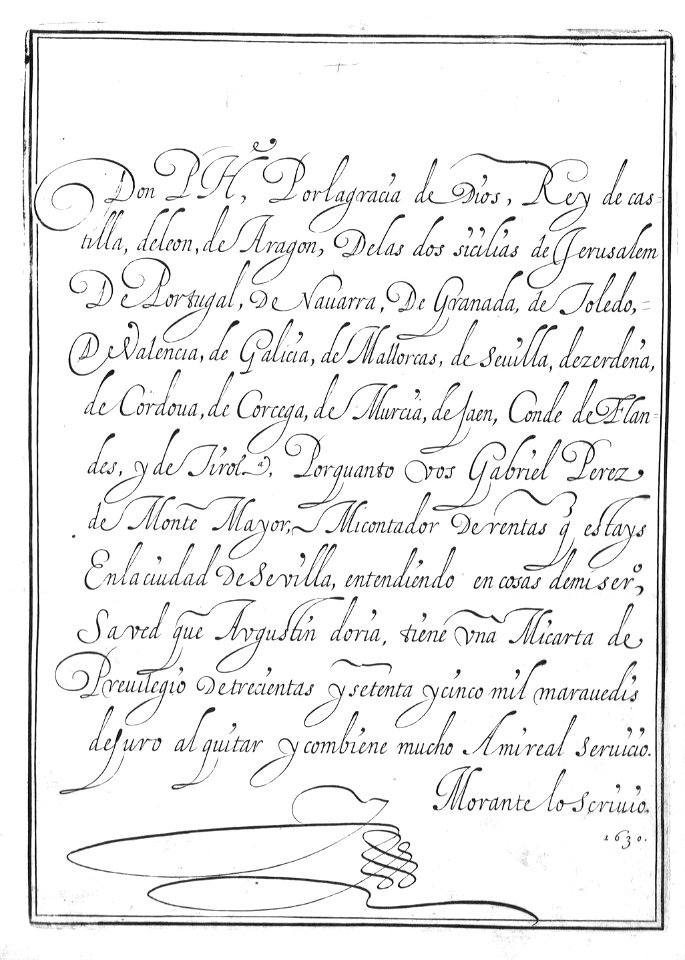 Don PHe, Porlagracia de Dios, Rey de cas-
tilla, deleon, de Aragon, Delas dos sicilias de Jerusalem
De Portugal, De Nauarra, De Granada, de Toledo,=
De Valencia, de Galicia, de Mallorcas, de Seuilla, dezerdeña,
de Cordoua, de Corcega, de Murcia, de Jaen, Conde de Flan=
des, y de Tirol ª, Porquanto vos Gabriel Perez
de Monte Mayor, Micontador De rentas q̃ estays
Enlaciudad De Sevilla, entendiendo en cosas demi serº,
Saved que Avgustin doria, tiene vna Micarta de
Preuilegio De trecientas y setenta y cinco mil marauedis
deJuro al quitar y combiene mucho A mi real seruicio.
Morante lo scriuio.
1630.